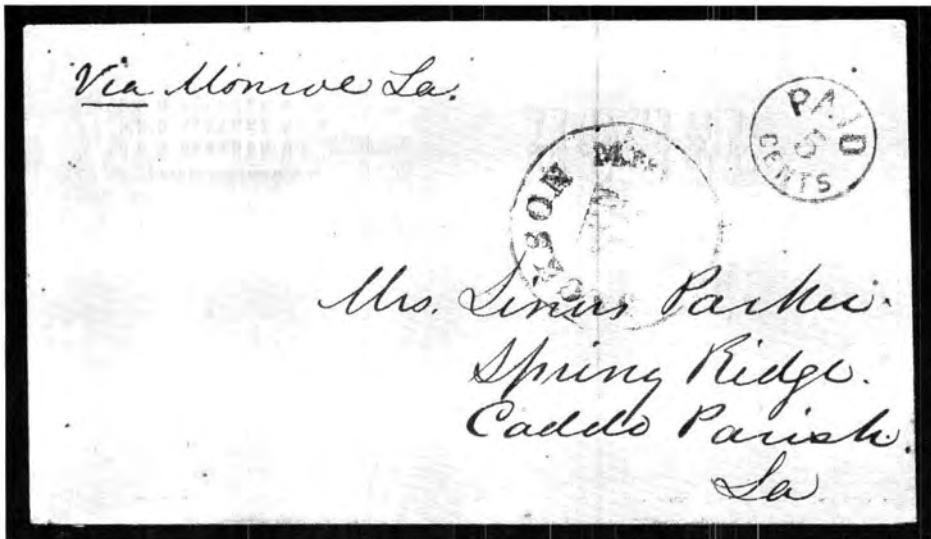 Via Monroe La.
PAID
5
CENTS
Mrs. Linus Parker.
Spring Ridge.
Caddo Parish.
La